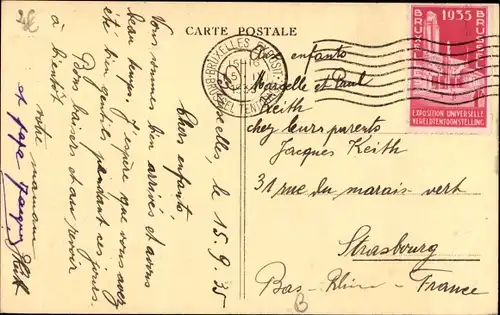 CARTE POSTALE
1935
BRUXELLES
BRUSSEL
EXPOSITION UNIVERSELLE
WERELDTENTOONSTELLING
Bruxelles, le 15.9.35
Chers enfants,
Vous sommes bien arrivés et avons
beau temps. J'espère que vous avez
été bien gentils pendant ces jours.
Bons baisers et au revoir
à bientôt
votre maman
et papa
Aux enfants
Marcelle et Paul
Keith
chez leurs parents
Jacques Keith
31 rue du marais vert
Strasbourg
Bas-Rhin - France
B